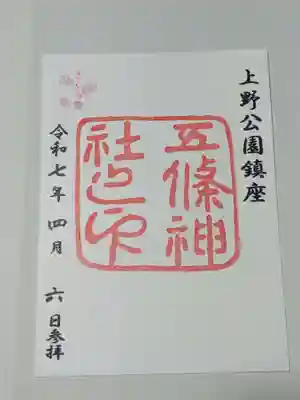 上野公園鎮座
五條神
社之印
令和七年 四月 六日参拝